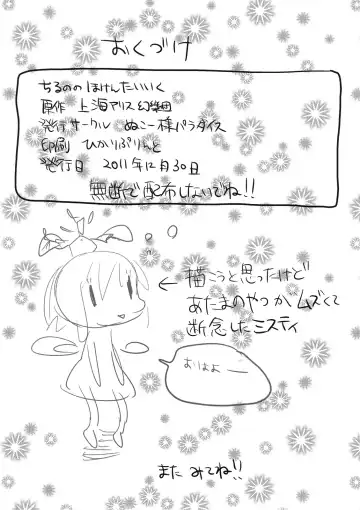 おくづけ
ちるののほけんたいいく
原作 上海アリス幻樂団
発行サークル ぬこー様パラダイス
印刷 ひかりぷりんと
発行日 2011年12月30日
無断で配布しないでね!!
← 描こうと思ったけど
あたまのやつが、ムズくて
断念したミスティ
おいよぉー
また みてね!!